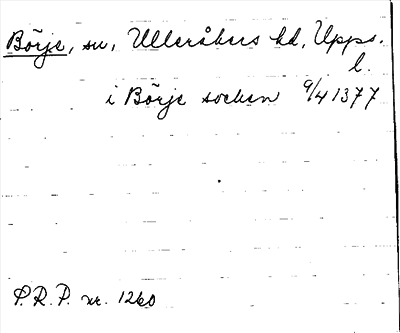 Börje, sn, Ulleråkers hd, Upps.
l.
i Börje socken 9/4 1377
P.R.P. nr. 1260